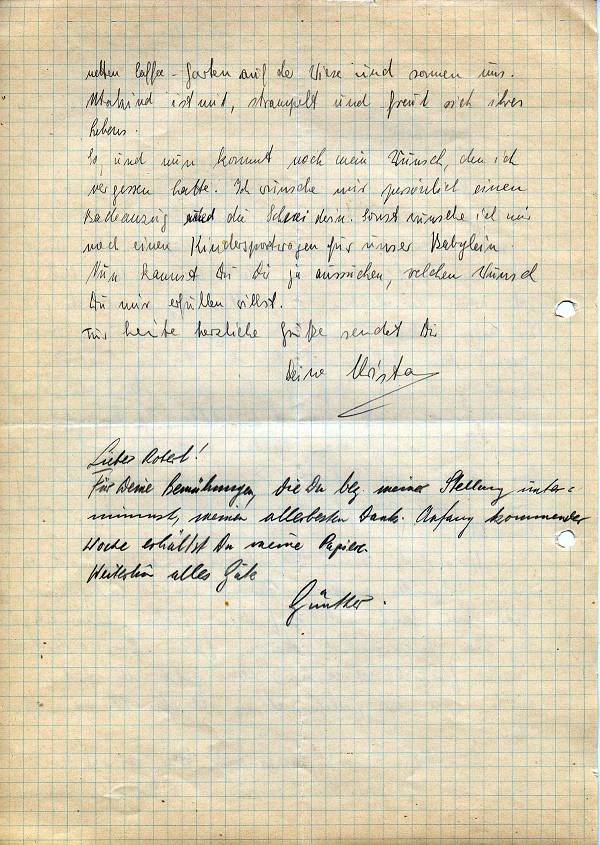 netten Caffee-Garten auf der Wiese und sonnen uns.
ist und, strampelt und freut sich ihres
Lebens.
So, und nun kommt noch mein Wunsch, den ich
vergessen hatte. Ich wünsche mir persönlich einen
Badeanzug und die dein. Sonst wünsche ich mir
noch einen Kindersportwagen für unser Babylein.
Nun kannst Du Dir ja aussuchen, welchen Wunsch
Du mir erfüllen willst.
Für heute herzliche Grüße sendet Dir
Deine Christa
Lieber Robert!
Für Deine Bemühungen, die Du bez meiner Stellung unter=
nimmst, meinen allerbesten Dank. Anfang kommender
Woche erhältst Du meine Papiere.
Weiterhin alles Gute
Günther.